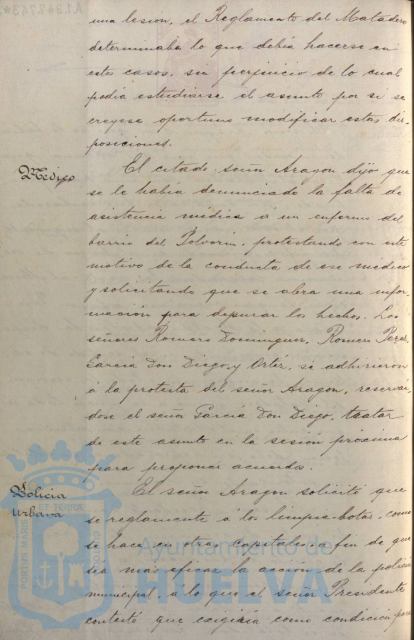 una lesion, el Reglamento del Matadero
determinaba lo que debia hacerse en
estos casos, sin perjuicio de lo cual
podia estudiarse el asunto por si se
creyese oportuno modificar estas dis-
posiciones.
Médico
El citado señor Aragon dijo que
se le habia denunciado la falta de
asistencia médica a un enfermo del
barrio del Polvorin, protestando con este
motivo de la conducta de ese médico
y solicitando que se abra una infor-
mación para depurar los hechos. Los
señores Romero Dominguez, Romero Perez,
Garcia Don Diego, y Ortiz, se adhirieron
á la protesta del señor Aragon, reserván
dose el señor Garcia Don Diego, tratar
de este asunto en la sesión proxima
para proponer acuerdos.
Policia
Urbana
El señor Aragon solicitó que
se reglamente á los limpia-botas, como
se hace en otras capitales a fin de que
sea mas eficaz la acción de la policia
municipal, a lo que el señor Presidente
contestó que exigiria como condición
Ayuntamiento de
HUELVA